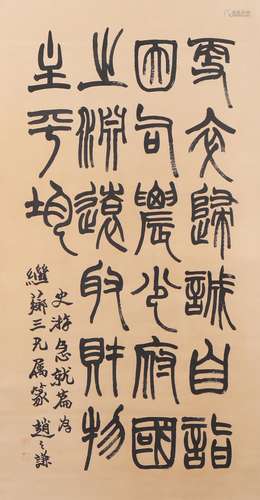 更卒歸誠自詣
因司農少府國
之淵遠取財物
主平均
史游急就篇為
繼三兄属篆 趙之謙